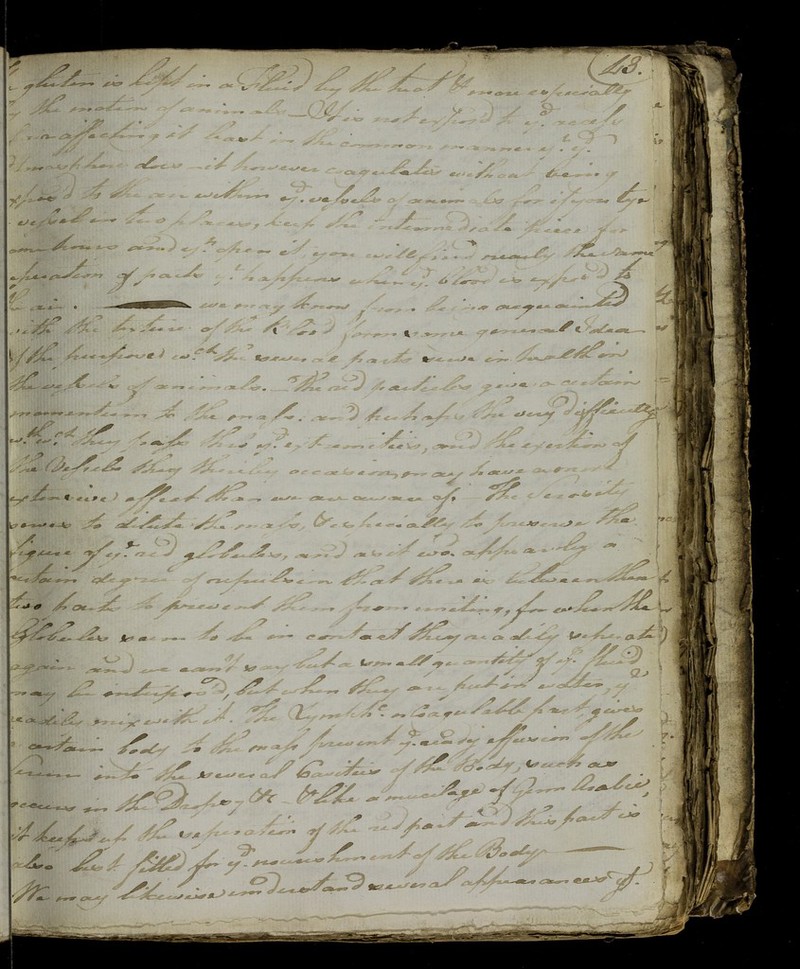 43.
gluten is kept in a Fluid by the heat & more especially
by the motion of animals — It is not exposed to ye. ready
affecting it least in the common manner yt. ye.
atmosphere does — it however coagulates without being
expos'd to the air within ye. vessels of animals for if you tye
vessel in two places, keep the intermediate piece for
some hours and yn. open it, you will find nearly the same
separation of parts yt. happens when ye. blood is expos'd to
the air. — we may know from being acquainted
with the texture of the Blood form some general Idea
of the purposes wch. the several parts serve in health in
the vessels of animals. — The red particles give a certain
momentum to the mass: and perhaps the very difficulty
wth. wch. they pass thro' ye. extremities, and the exertion of
the Vessels they thereby occasion, may have a more
extensive effect than we are aware of. — The Serosity
serves to dilute the mass, & especially to preserve the
figure of ye. red globules, and as it wd. appear by a
certain degree of repulsion that there is between these
two parts to prevent them from uniting, for when the
Globules seem to be in contact they readily seperate
again and we can't say but a small quantity of ye. fluid
may be interpos'd, but when they are put in water, ye
readily mix with it. The Lymphc. or Coagulable part, gives
a certain body to the mass prevent ye. ready effusion of the
Serum into the several Cavities of the Body, such as
occurs in the Dropsy &c — & like a mucilage of Gum Arabic,
it keeps up the seperation of the red part and this part is
also best fitted for ye. nourishment of the Body —
We may likewise understand several appearances yt.